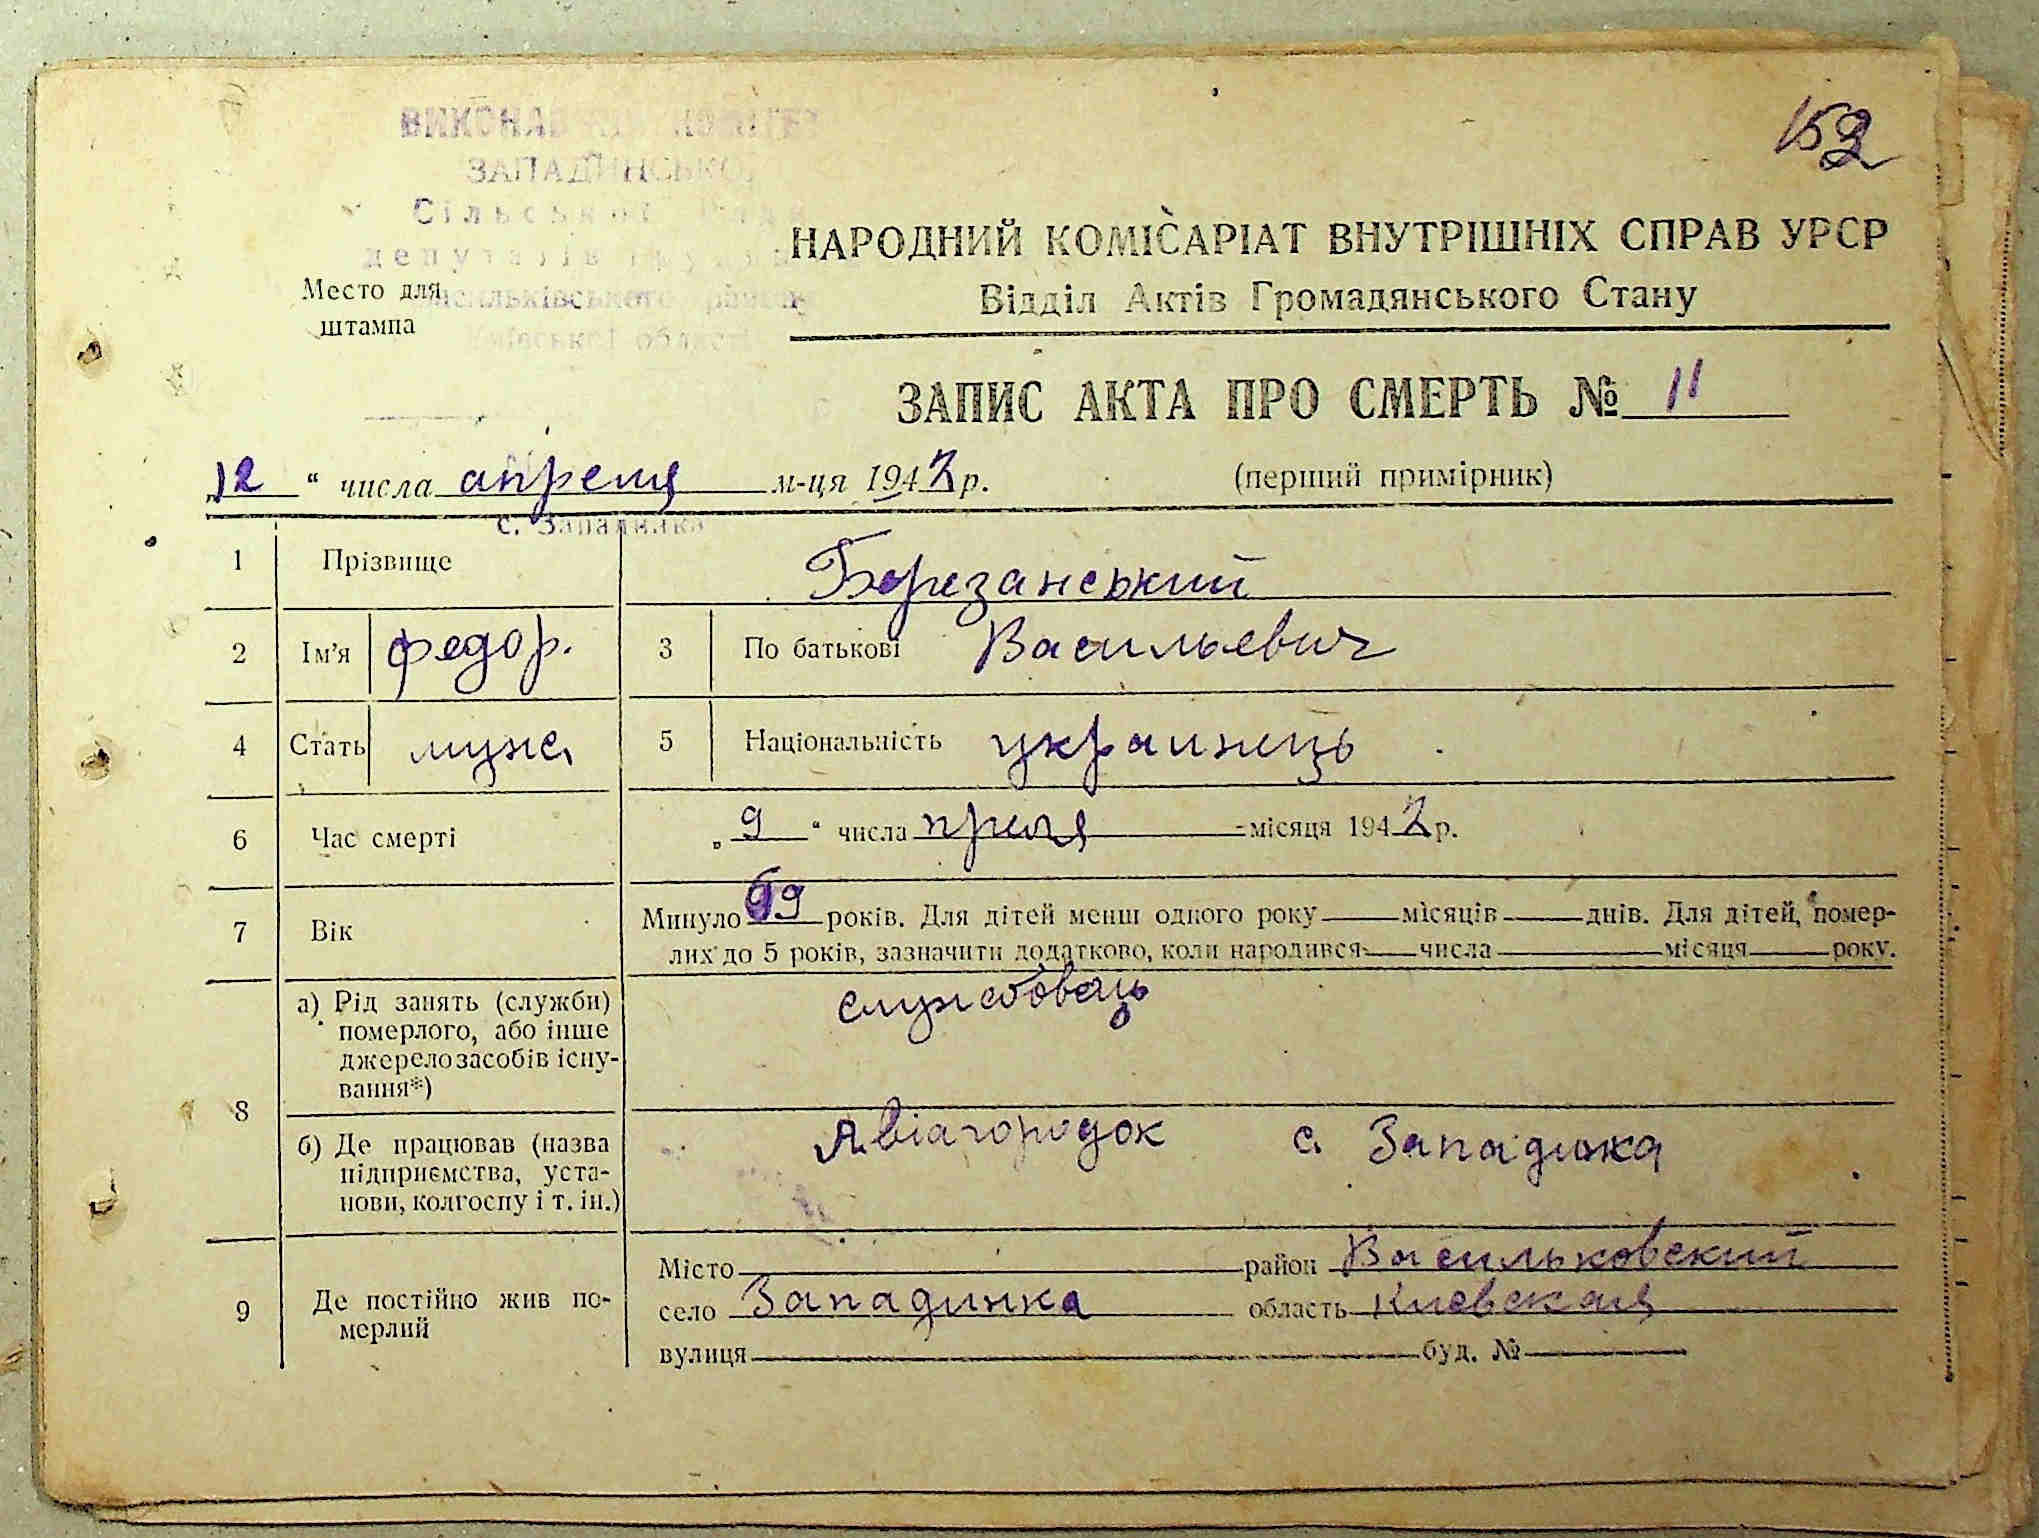 152
ЗАПАДИНСЬКОЇ
Сільської Ради
депутатів
Васильківського району
Київської області
НАРОДНИЙ КОМІСАРІАТ ВНУТРІШНІХ СПРАВ УРСР
Відділ Актів Громадянського Стану
Место для
штампа
ЗАПИС АКТА ПРО СМЕРТЬ № 11
„12“ числа апреля м-ця 1942 р. (перший примірник)
с. Западинка
1 Прізвище Борезанський
2 Ім'я Федор. 3 По батькові Васильевич
4 Стать муж. 5 Національність украинець
6 Час смерті „9“ числа преля місяця 1942 р.
7 Вік Минуло 69 років. Для дітей менш одного року — місяців — днів. Для дітей, помер-
лих до 5 років, зазначити додатково, коли народився — числа — місяця — року.
8 а) Рід занять (служби)
померлого, або інше
джерело засобів існу-
вання*)
службовець
б) Де працював (назва
підприємства, уста-
нови, колгоспу і т. ін.)
Авіагородок с. Западинка
9 Де постійно жив по-
мерлий
Місто — район Васильковский
село Западинка область Киевская
вулиця — буд. № —